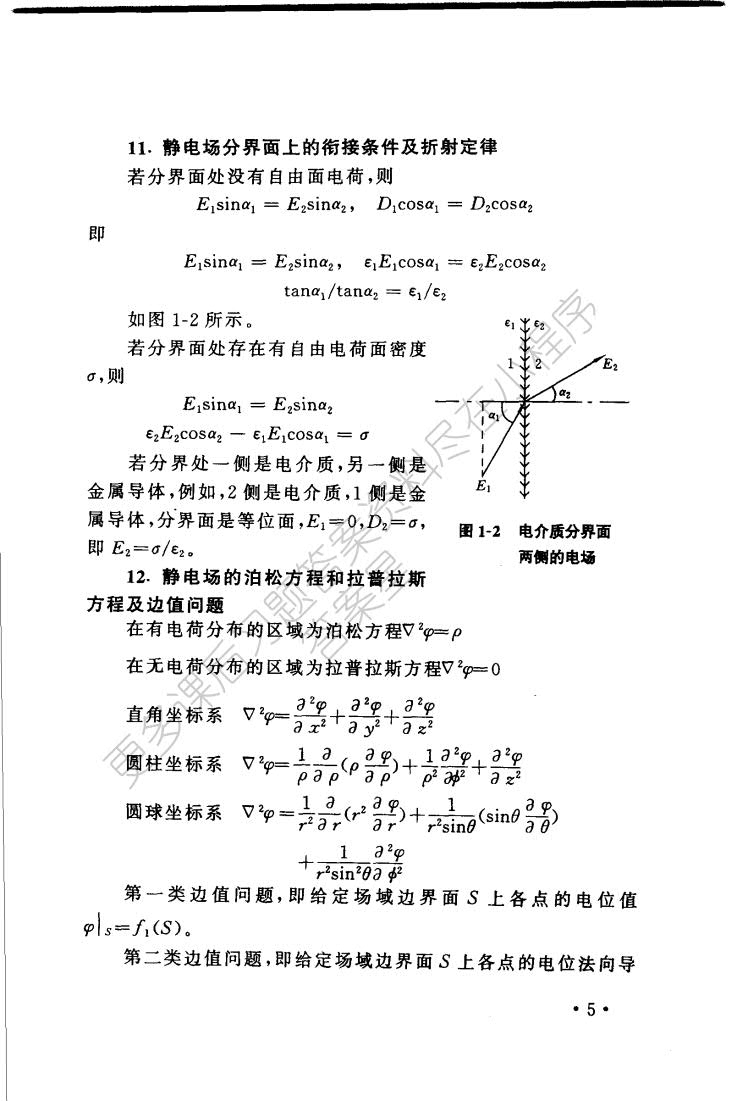 11. 静电场分界面上的衔接条件及折射定律
若分界面处没有自由面电荷,则
E₁sinα₁ = E₂sinα₂, D₁cosα₁ = D₂cosα₂
即
E₁sinα₁ = E₂sinα₂, ε₁E₁cosα₁ = ε₂E₂cosα₂
tanα₁/tanα₂ = ε₁/ε₂
如图 1-2 所示。
若分界面处存在有自由电荷面密度
σ,则
E₁sinα₁ = E₂sinα₂
ε₂E₂cosα₂ − ε₁E₁cosα₁ = σ
若分界处一侧是电介质,另一侧是
金属导体,例如,2 侧是电介质,1 侧是金
属导体,分界面是等位面,E₁=0,D₂=σ,
即 E₂=σ/ε₂。
ε₁ ε₂
1 2
E₂
α₂
α₁
E₁
图 1-2 电介质分界面
两侧的电场
12. 静电场的泊松方程和拉普拉斯
方程及边值问题
在有电荷分布的区域为泊松方程∇²φ=ρ
在无电荷分布的区域为拉普拉斯方程∇²φ=0
直角坐标系 ∇²φ=∂²φ/∂x²+∂²φ/∂y²+∂²φ/∂z²
圆柱坐标系 ∇²φ=1/ρ ∂/∂ρ(ρ ∂φ/∂ρ)+1/ρ² ∂²φ/∂ϕ²+∂²φ/∂z²
圆球坐标系 ∇²φ=1/r² ∂/∂r(r² ∂φ/∂r)+1/(r²sinθ)(sinθ ∂φ/∂θ)
+1/(r²sin²θ) ∂²φ/∂ϕ²
第一类边值问题,即给定场域边界面 S 上各点的电位值
φ|s=f₁(S)。
第二类边值问题,即给定场域边界面 S 上各点的电位法向导
· 5 ·
更多课后习题答案资料尽在小程序
答案星